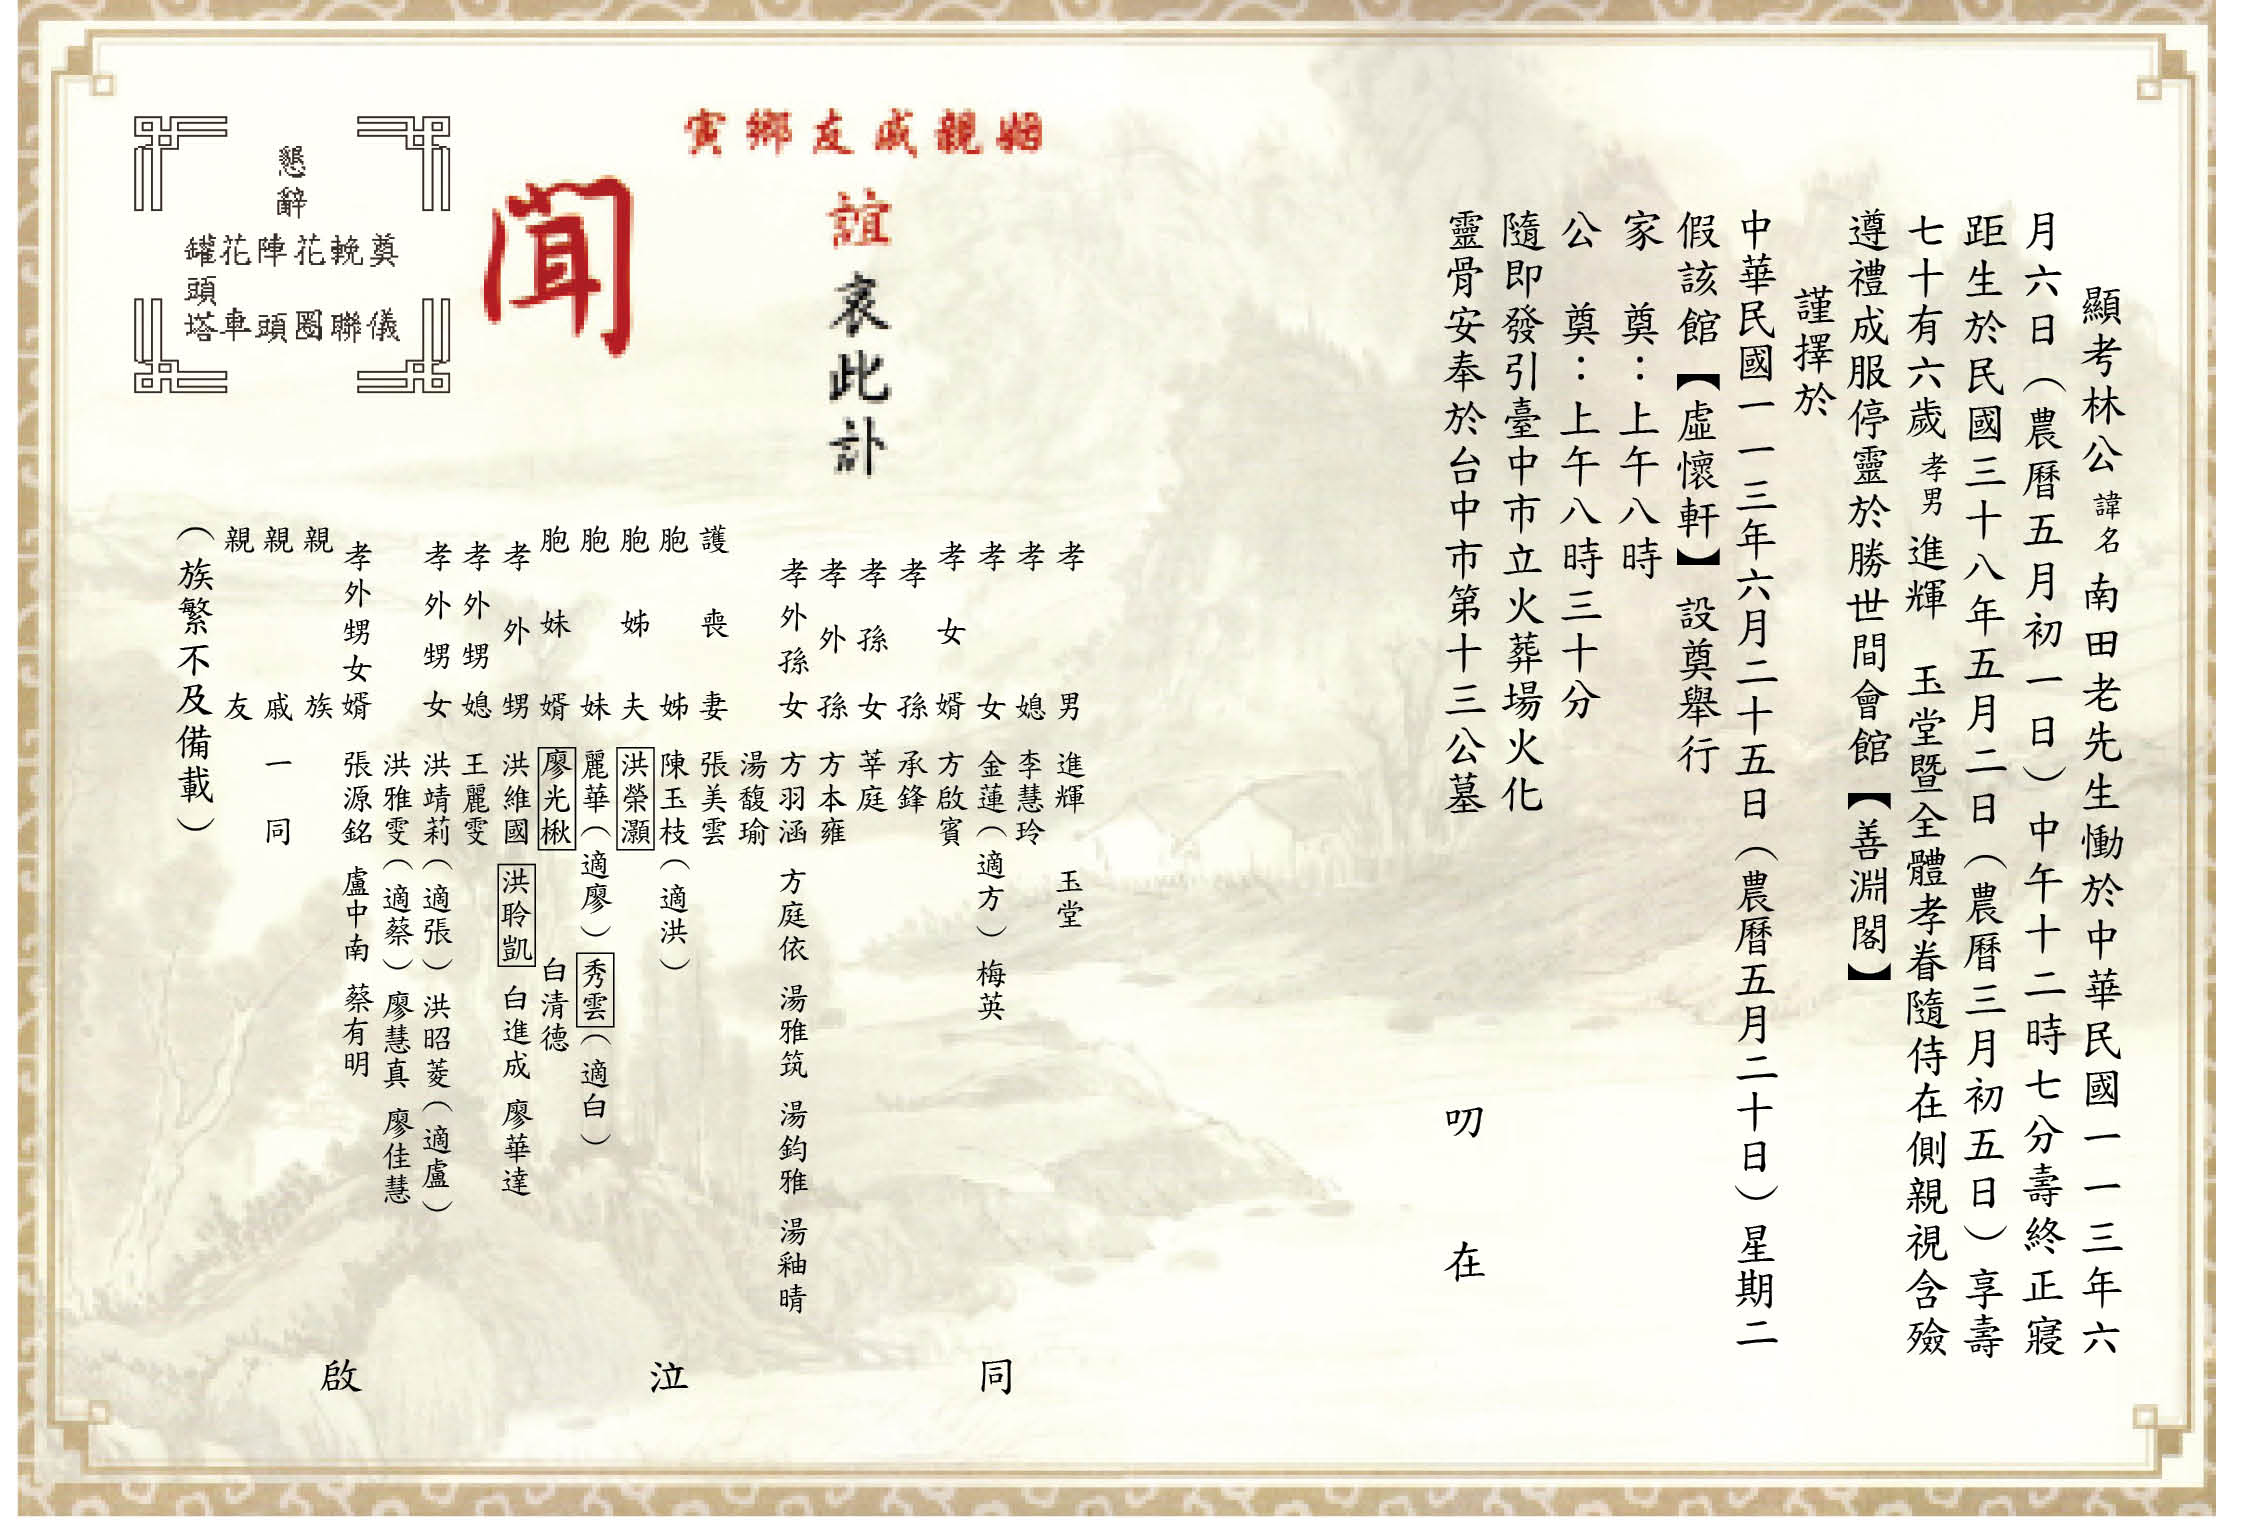 顯考林公諱名南田老先生慟於中華民國一一三年六
月六日（農曆五月初一日）中午十二時七分壽終正寢
距生於民國三十八年五月二日（農曆三月初五日）享壽
七十有六歲孝男進輝　玉堂暨全體孝眷隨侍在側親視含殮
遵禮成服停靈於勝世間會館【善淵閣】
謹擇於
中華民國一一三年六月二十五日（農曆五月二十日）星期二
假該館【虛懷軒】設奠舉行
家　奠：上午八時
公　奠：上午八時三十分
隨即發引臺中市立火葬場火化
靈骨安奉於台中市第十三公墓
叨　在
姻親戚友鄉寅
誼哀此訃
聞
孝男　進輝　玉堂
孝媳　李慧玲
孝女　金蓮（適方）　梅英
孝女婿　方啟賓
孝孫　承鋒
孝孫女　莘庭
孝外孫　方本雍
孝外孫女　方羽涵　方庭依　湯雅筑　湯鈞雅　湯釉晴
湯馥瑜
護喪妻　張美雲
胞姊　陳玉枝（適洪）
胞姊夫　洪榮灝
胞妹　麗華（適廖）　秀雲（適白）
胞妹婿　廖光楸　白清德
孝外甥　洪維國　洪聆凱　白進成　廖華達
孝外甥媳　王麗雯
孝外甥女　洪靖莉（適張）　洪昭菱（適盧）
洪雅雯（適蔡）　廖慧真　廖佳慧
孝外甥女婿　張源銘　盧中南　蔡有明
親族
親戚　一同
親友
（族繁不及備載）
同　泣　啟
懇辭
奠儀
輓聯
花圈
陣頭
花車
罐頭塔